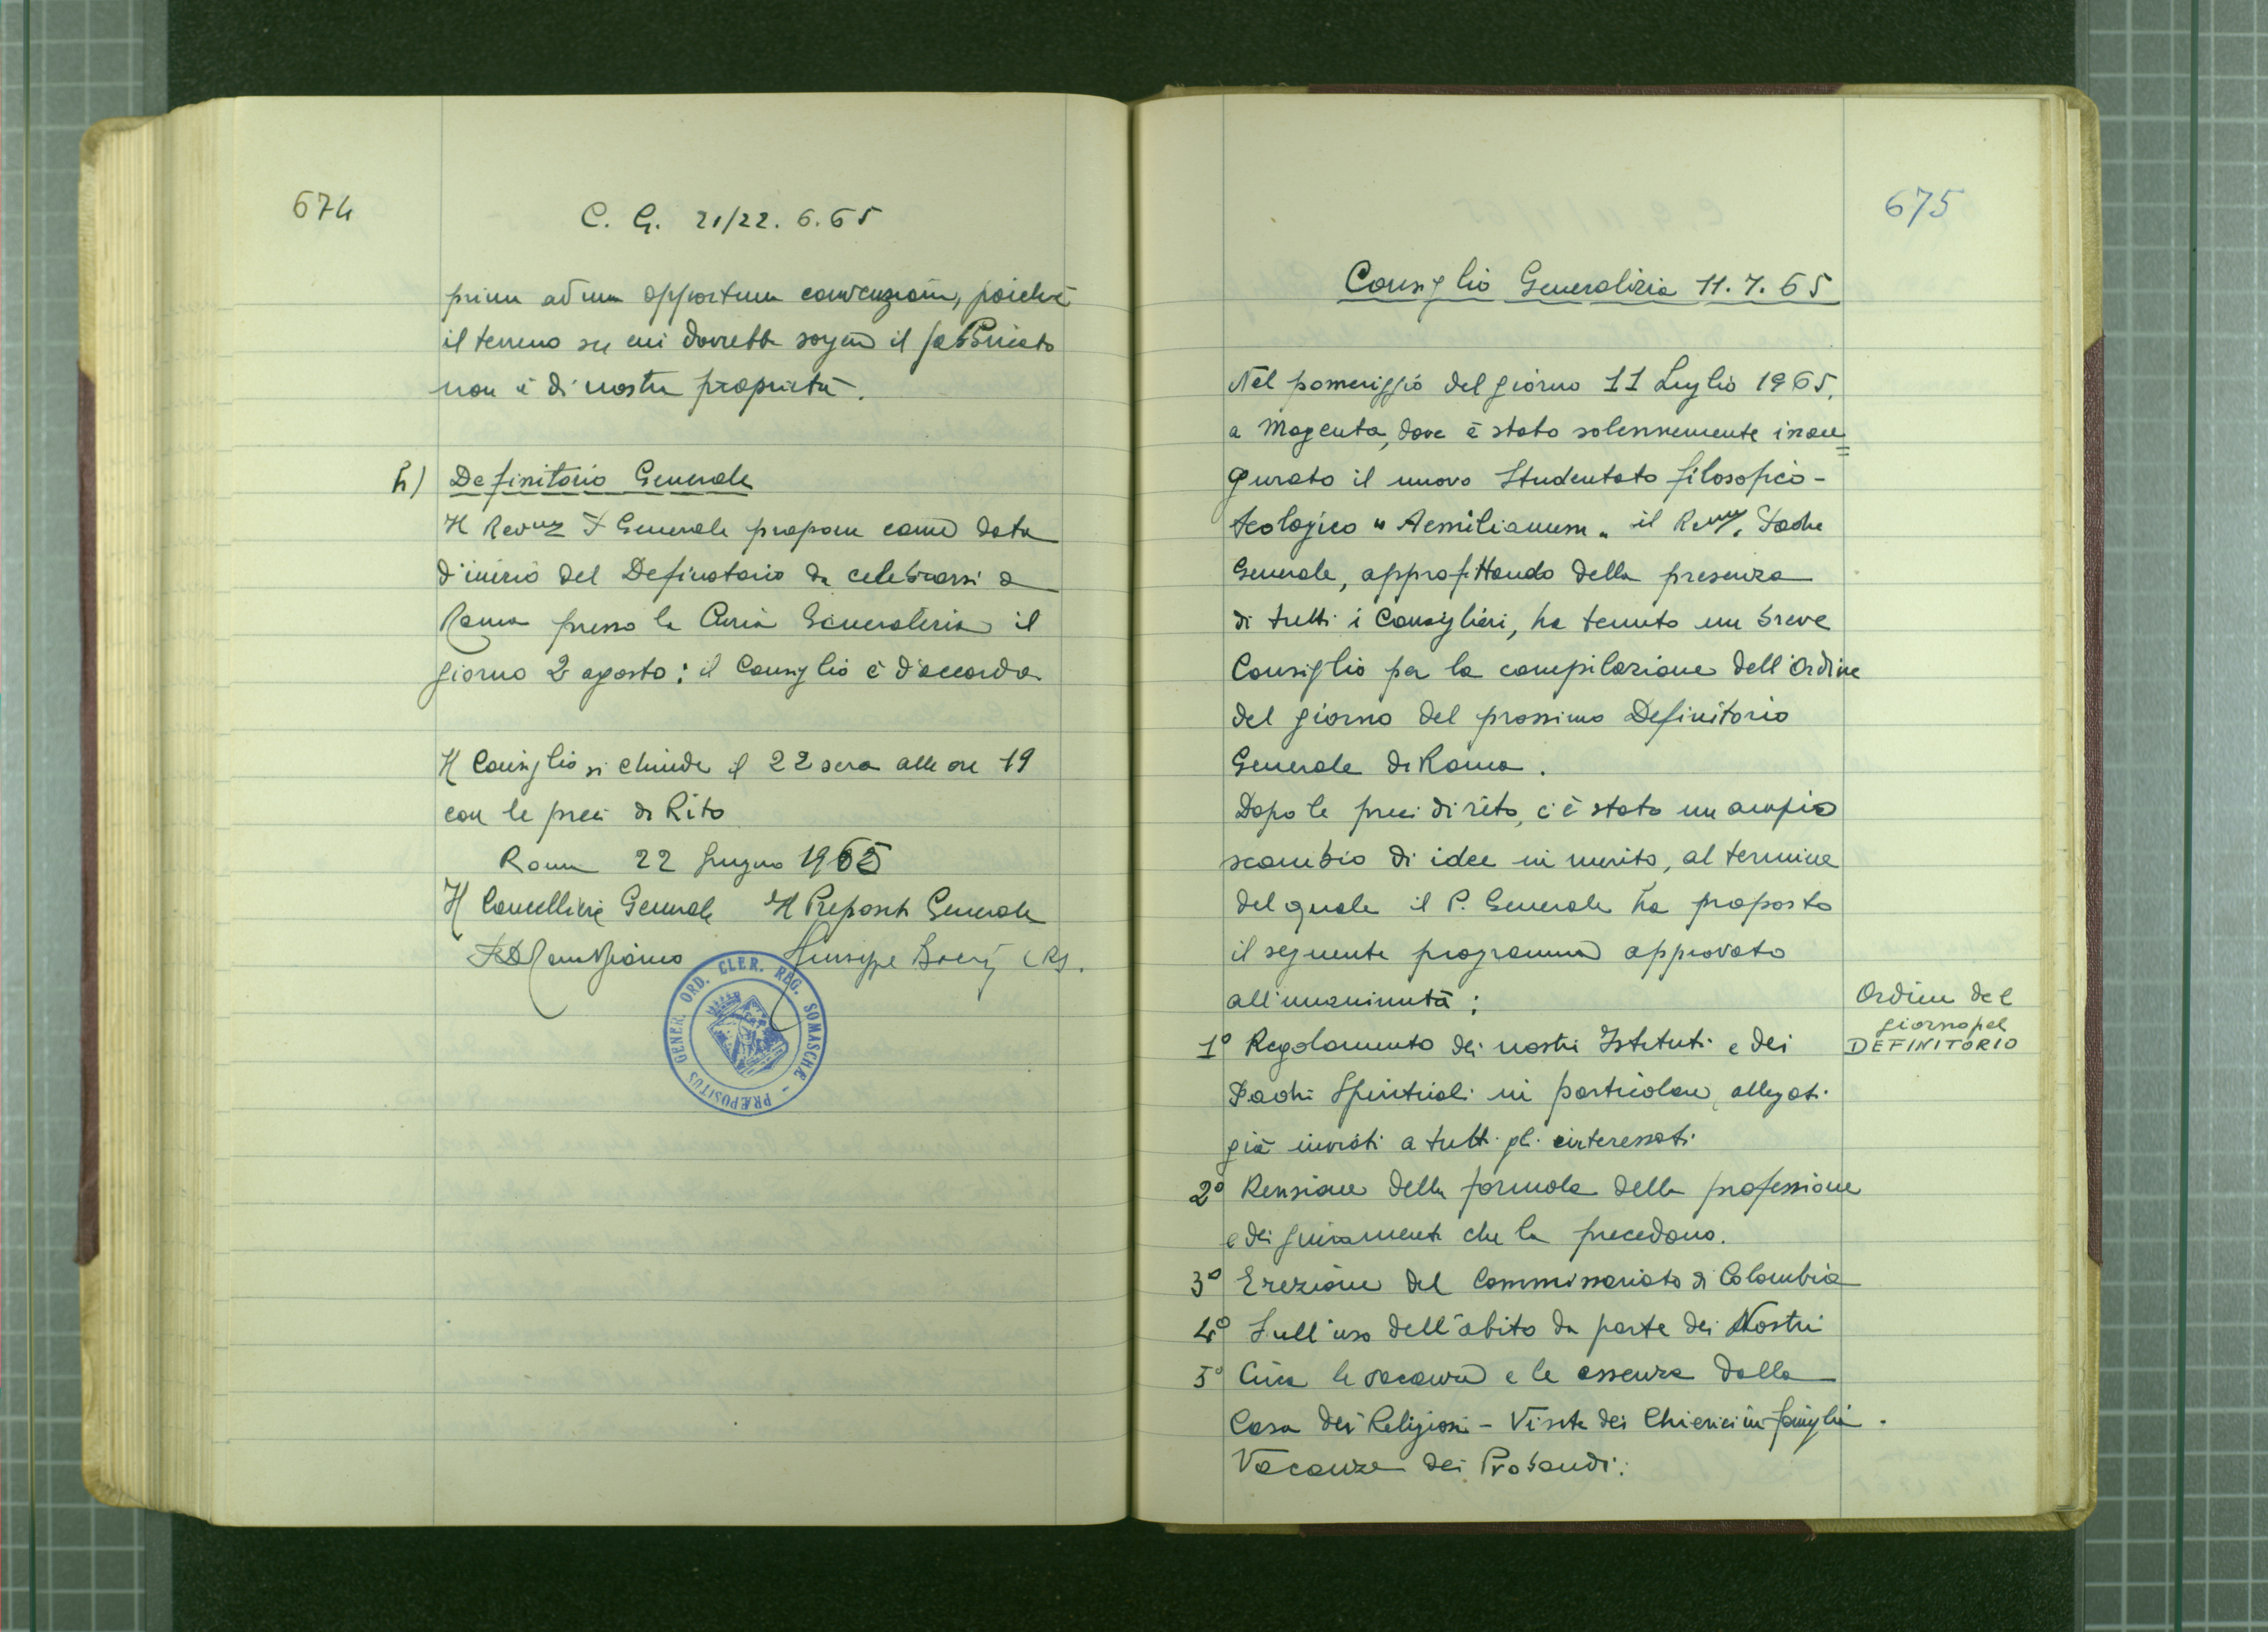 674
C. G. 21/22.6.65
prima ad una opportuna convenzione, poichè
il terreno su cui dovrebbe sorgere il fabbricato
non è di nostra proprietà.
h) Definitorio Generale
Il Rev.mo P. Generale propone come data
d'inizio del Definitorio da celebrarsi a
Roma presso la Curia Generalizia il
giorno 2 agosto: il Consiglio è d'accordo
Il Consiglio si chiude il 22 sera alle ore 19
con le preci di Rito
Roma 22 Giugno 1965
Il Cancelliere Generale Il Preposito Generale
Giuseppe Boeris CRS.
PRÆPOSITUS GENER. ORD. CLER. REG. SOMASCHÆ -
675
Consiglio Generalizio 11.7.65
Nel pomeriggio del giorno 11 Luglio 1965,
a Magenta, dove è stato solennemente inau=
gurato il nuovo Studentato filosofico-
teologico "Aemilianum" il Rev.mo Padre
Generale, approfittando della presenza
di tutti i Consiglieri, ha tenuto un breve
Consiglio per la compilazione dell'Ordine
del giorno del prossimo Definitorio
Generale di Roma.
Dopo le preci di rito, c'è stato un ampio
scambio di idee in merito, al termine
del quale il P. Generale ha proposto
il seguente programma approvato
all'unanimità:
Ordine del
giorno pel
DEFINITORIO
1° Regolamento dei nostri Istituti e dei
Padri Spirituali in particolare, allegati
già inviati a tutti gli interessati
2° Revisione della formola della professione
e dei giuramenti che la precedono.
3° Erezione del Commissariato di Colombia
4° Sull'uso dell'abito da parte dei Nostri
5° Circa le vacanze e le assenze dalla
Casa dei Religiosi - Visite dei Chierici in famiglia.
Vacanze dei Probandi: